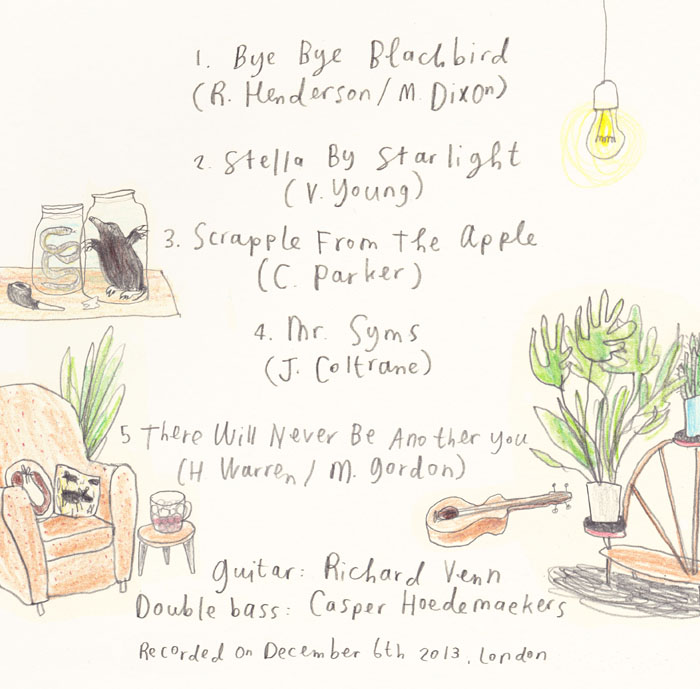 1. Bye Bye Blackbird
(R. Henderson / M. Dixon)
2. Stella By Starlight
(V. Young)
3. Scrapple From The Apple
(C. Parker)
4. Mr. Syms
(J. Coltrane)
5 There Will Never Be Another you
(H Warren / M. gordon)
guitar: Richard Venn
Double bass: Casper Hoedemaekers
Recorded on December 6th 2013, London